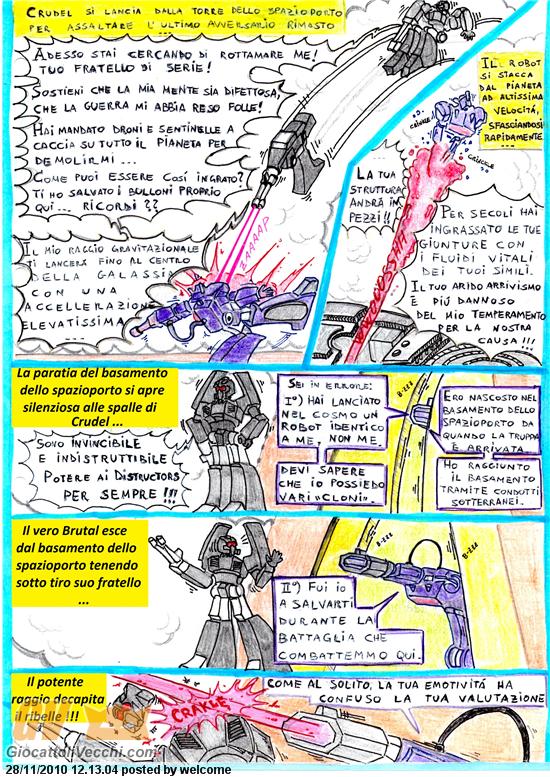 CRUDEL SI LANCIA DALLA TORRE DELLO SPAZIOPORTO
PER ASSALTARE L'ULTIMO AVVERSARIO RIMASTO
ADESSO STAI CERCANDO DI ROTTAMARE ME!
TUO FRATELLO DI SERIE!
SOSTIENI CHE LA MIA MENTE SIA DIFETTOSA,
CHE LA GUERRA MI ABBIA RESO FOLLE!
HAI MANDATO DRONI E SENTINELLE A
CACCIA SU TUTTO IL PIANETA PER
DEMOLIRMI ...
COME PUOI ESSERE COSÍ INGRATO?
TI HO SALVATO I BULLONI PROPRIO
QUI... RICORDI ??
IL MIO RAGGIO GRAVITAZIONALE
TI LANCERÀ FINO AL CENTRO
DELLA GALASSIA
CON UNA
ACCELLERAZIONE
ELEVATISSIMA
ZAAAAP
IL ROBOT
SI STACCA
DAL PIANETA
AD ALTISSIMA
VELOCITÁ,
SFASCIANDOSI
RAPIDAMENTE
CRUNCK!
CRACKLE
LA TUA
STRUTTURA
ANDRÀ IN
PEZZI!!
PER SECOLI HAI
INGRASSATO LE TUE
GIUNTURE CON
I FLUIDI VITALI
DEI TUOI SIMILI.
IL TUO ARIDO ARRIVISMO
È PIÙ DANNOSO
DEL MIO TEMPERAMENTO
PER LA NOSTRA
CAUSA !!!
La paratia del basamento
dello spazioporto si apre
silenziosa alle spalle di
Crudel ...
SONO INVINCIBILE
E INDISTRUTTIBILE
POTERE AI DISTRUCTORS
PER SEMPRE !!!
SEI IN ERRORE:
I°) HAI LANCIATO
NEL COSMO UN
ROBOT IDENTICO
A ME, NON ME.
DEVI SAPERE
CHE IO POSSIEDO
VARI «CLONI».
B-ZZZ
ERO NASCOSTO NEL
BASAMENTO DELLO
SPAZIOPORTO DA
QUANDO LA TRUPPA
È ARRIVATA.
HO RAGGIUNTO
IL BASAMENTO
TRAMITE CONDOTTI
SOTTERRANEI.
Il vero Brutal esce
dal basamento dello
spazioporto tenendo
sotto tiro suo fratello
...
B-ZZZ
B-ZZZ
II°) FUI IO
A SALVARTI
DURANTE LA
BATTAGLIA CHE
COMBATTEMMO QUI.
Il potente
raggio decapita
il ribelle !!!
CRAKLE
COME AL SOLITO, LA TUA EMOTIVITÁ HA
CONFUSO LA TUA VALUTAZIONE
GiocattoliVecchi.com
28/11/2010 12.13.04 posted by welcome